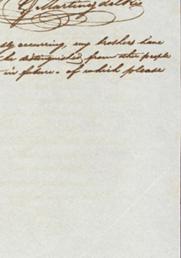 G Martinez del Rio
occurring, my brothers have
be distinguished from other people
in future. of which please